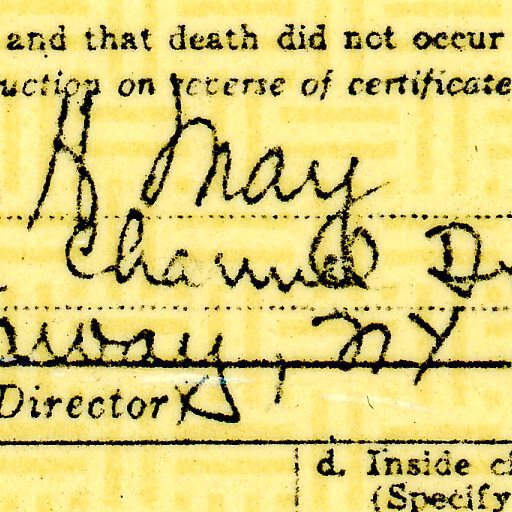 and that death did not occur
uction on reverse of certificate
H May
Channel Dr
away, NY
Director)
d. Inside ci
(Specify